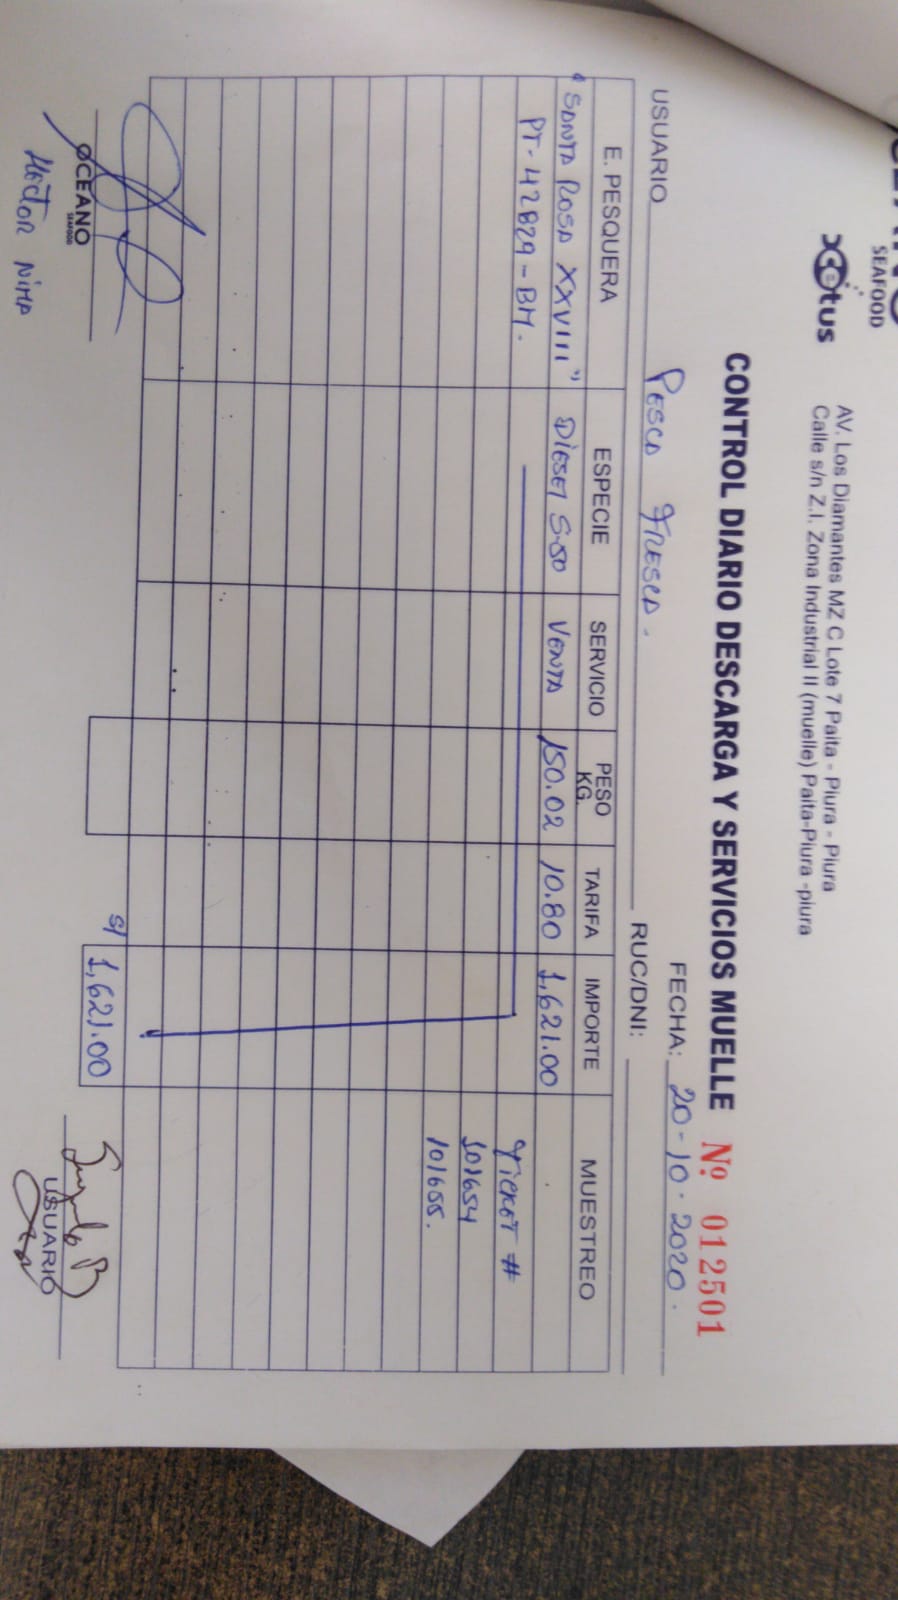 SEAFOOD
cetus
AV. Los Diamantes MZ C Lote 7 Paita - Piura - Piura
Calle s/n Z.I. Zona Industrial II (muelle) Paita-Piura -piura
CONTROL DIARIO DESCARGA Y SERVICIOS MUELLE Nº 012501
FECHA: 20-10-2020.
USUARIO PESCA FRESCA. RUC/DNI:
E. PESQUERA ESPECIE SERVICIO PESO KG. TARIFA IMPORTE MUESTREO
"SANTA ROSA XXVIII" DIESEL S-50 VENTA 150.02 10.80 1,621.00
PT-42829-BM. TICKET #
101654
101655.
S/ 1,621.00
OCEANO
SEAFOOD
USUARIO
Héctor NIMA